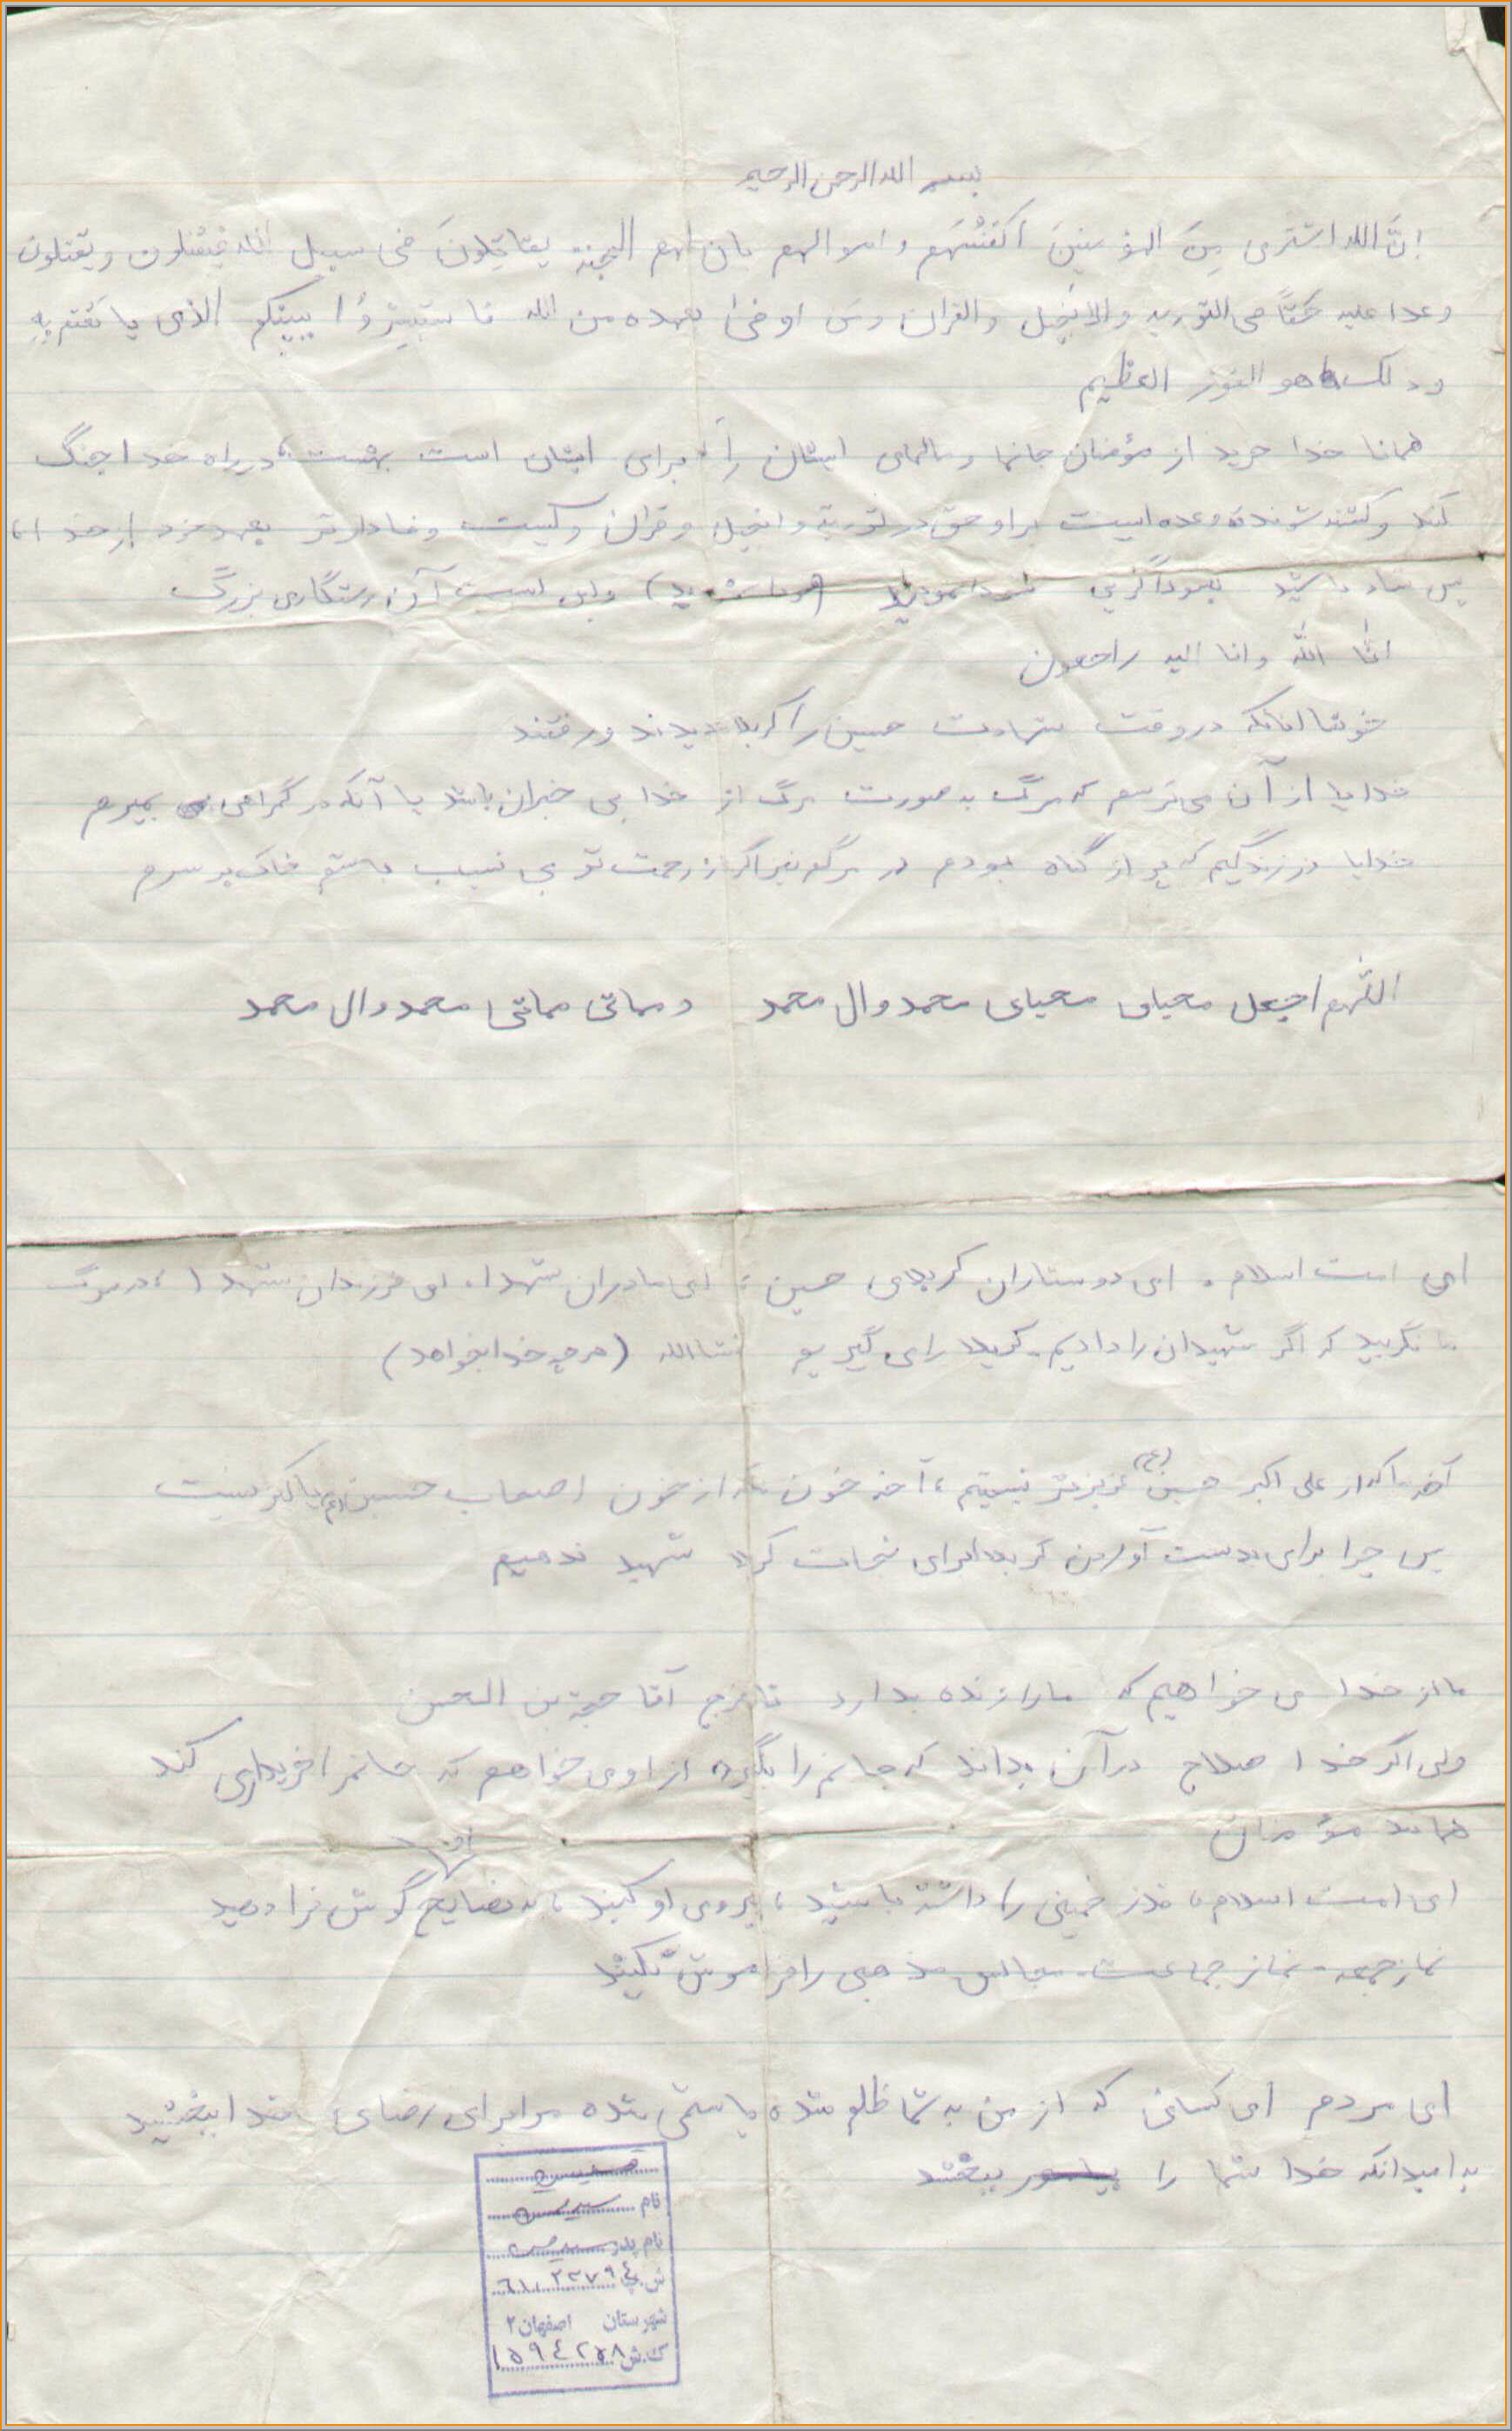 بسم الله الرحمن الرحیم
انَّ الله اشتری مِنَ المؤمنینَ اَنفُسَهُم و اموالهم بان لهم الجنة یقاتِلونَ فی سبیل الله فیَقتلون و یقتلون
وعدا علیه حَقّاً فی التوریه والانجیل والقران ومن اوفیٰ بعهده من الله فاستبشِروُا ببیعکم الذی بایَعتم بِهِ
وذلک هو الفوز العظیم
همانا خدا خرید از مؤمنان جانها و مالهای ایشان را برای ایشان است بهشت، در راه خدا جنگ
کنند و کشته شوند وعده ایست بر او حق در توریة و انجیل و قران و کیست وفادارتر بعهد خود از خدا،
پس شاد باشید بسوداگری و این است آن رستگاری بزرگ
انا الله وانا الیه راجعون
خوشا انانکه در وقت شهادت حسین را کربلا دیدند و رفتند
خدایا از آن می ترسم که مرگ به صورت مرگ از خدا بی خبران باشد یا آنکه در گمراهی بمیرم
خدایا در زندگیم که پر از گناه بودم در مرگم نیز اگر ز رحمت تو بی نسیب باشم خاک بر سرم
اللّهم اجعل محیای محیای محمد وال محمد و مماتی مماتی محمد وال محمد
ای امت اسلام، ای دوستاران کربلای حسین: ای مادران شهدا، ای فرزندان شهدا، در مرگ
ما نگریید که اگر شهیدان را دادیم، کربلا را می گیریم انشاالله (هرچه خدا بخواهد)
آخه ما که از علی اکبر حسین (ع) عزیزتر نیستیم، آخه خون ما از خون اصحاب حسین (ع) پاکتر نیست
پس چرا برای بدست آوردن کربلا برای نجات کربلا شهید ندهیم
ما از خدا می خواهیم که ما را زنده بدارد تا فرج آقا حجة بن الحسن
ولی اگر خدا صلاح در آن بداند که جانم را بگیرد از او می خواهم که جانم را خریداری کند
همانند مؤمنان
ای امت اسلام، قدر خمینی را داشته باشید، پیروی او کنید، به نصایح او گوش فرا دهید
نماز جمعه - نماز جماعت - مجالس مذهبی را فراموش نکنید
ای مردم ای کسانی که از من به شما ظلم شده یا ستمی شده مرا برای رضای خدا ببخشید
به امید انکه خدا شما را ببخشد
نام
نام پدر
ش پ ٦١,٢٣٧٩٤
شهرستان اصفهان ۲
ک.ش